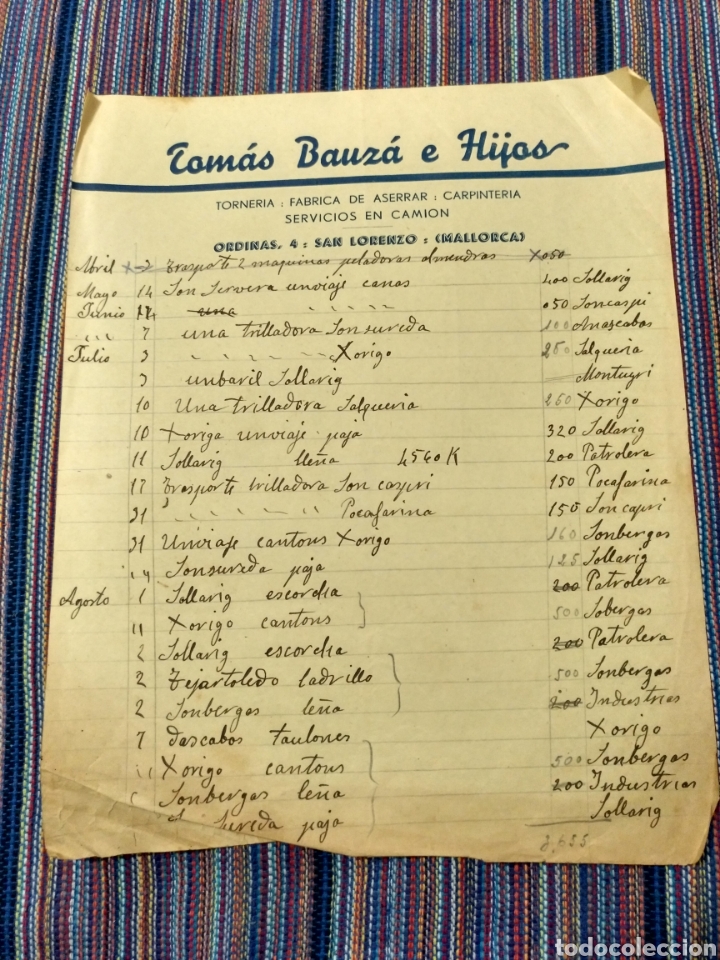 Tomás Bauzá e Hijos
TORNERIA : FABRICA DE ASERRAR : CARPINTERIA
SERVICIOS EN CAMION
ORDINAS, 4 : SAN LORENZO : (MALLORCA)
Abril x 2 Trasporte 2 maquinas peladoras almendras x 050
Mayo 14 Son Servera unviaje canas 400 Sollarig
Junio 14 una " " " " 050 Soncaspi
" 7 una trilladora Sonsureda 100 Anascabos
Julio 3 " " " " Xorigo 250 Salqueria
3 unbaril Sollarig Montuyri
10 Una trilladora Salqueria 260 Xorigo
10 Xoriga unviaje paja 320 Sollarig
11 Sollarig lleña 4540 K 200 Patrolera
17 Trasporte trilladora Son capri 150 Pocafarina
31 " " " " Pocafarina 150 Son capri
31 Unviaje cantons Xorigo 160 Sonbergas
" Sonsureda paja 125 Sollarig
Agosto 1 Sollarig escorcha 200 Patrolera
" Xorigo cantons 500 Sobergas
2 Sollarig escorcha 200 Patrolera
2 Tejartoledo ladrillo 500 Sonbergas
2 Sonbergas leña 200 Industrias
7 dascabos taulones Xorigo
" Xorigo cantons 500 Sonbergas
Sonbergas leña 200 Industrias
Sureda paja Sollarig
3,655
todocoleccion